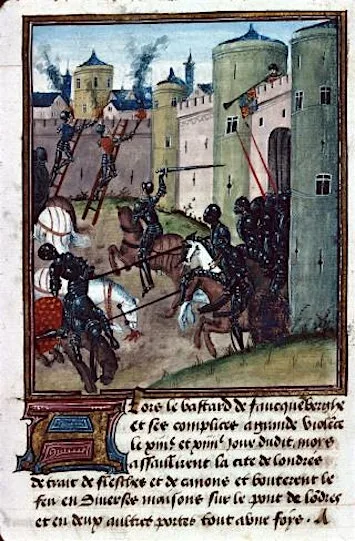 Lors le bastard de faucqueberghe
et ses complices a grande violēce
le et jour dudit moys
assaillirent la cite de londres
de trait de flesches et de canons et bouterent le
feu en diverses maisons sur le pont de lōdres
et en deux aultres portes tout a une foys . A